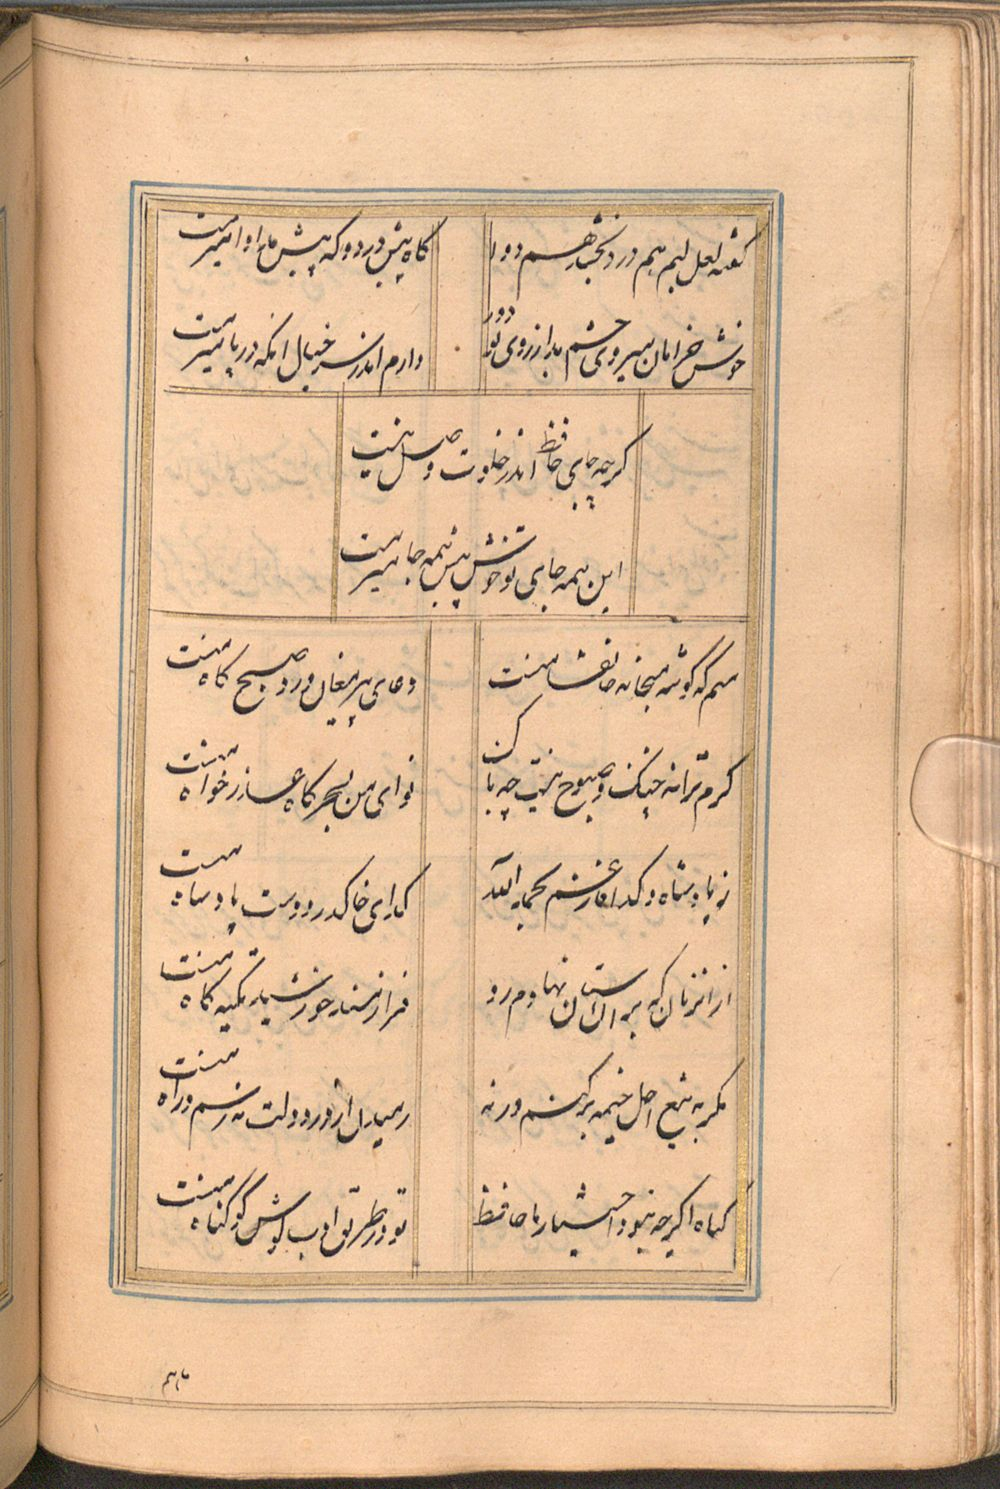 گفته لعل لبم هم درد بخشد هم دوا
گاه پیش درد و که پیش مداوا میرمت
خوش خرامان میروی چشم بد از روی تو دور
دارم اندر سر خیال انکه در پا میرمت
کرچه جای حافظ اندر خلوت وصل تو نیست
این همه جای تو خوش پیش همه جا میرمت
منم که گوشه میخانه خانقاه منست
دعای پیر مغان ورد صبحگاه منست
کرم ترانه چنگ و صبوح نیست چه باک
نوای من بسحرگاه عذر خواه منست
ز پادشاه و کدا فارغم بحمد الله
کدای خاک در دوست پادشاه منست
از انزمان که بر ان استان نهادم رو
فراز مسند خورشید تکیه گاه منست
مکر به تیغ اجل خیمه برکنم ورنه
رمیدن از در دولت نه رسم و راه منست
کناه اکرچه نبود اختیار ما حافظ
تو در طریق ادب کوش کو کناه منست